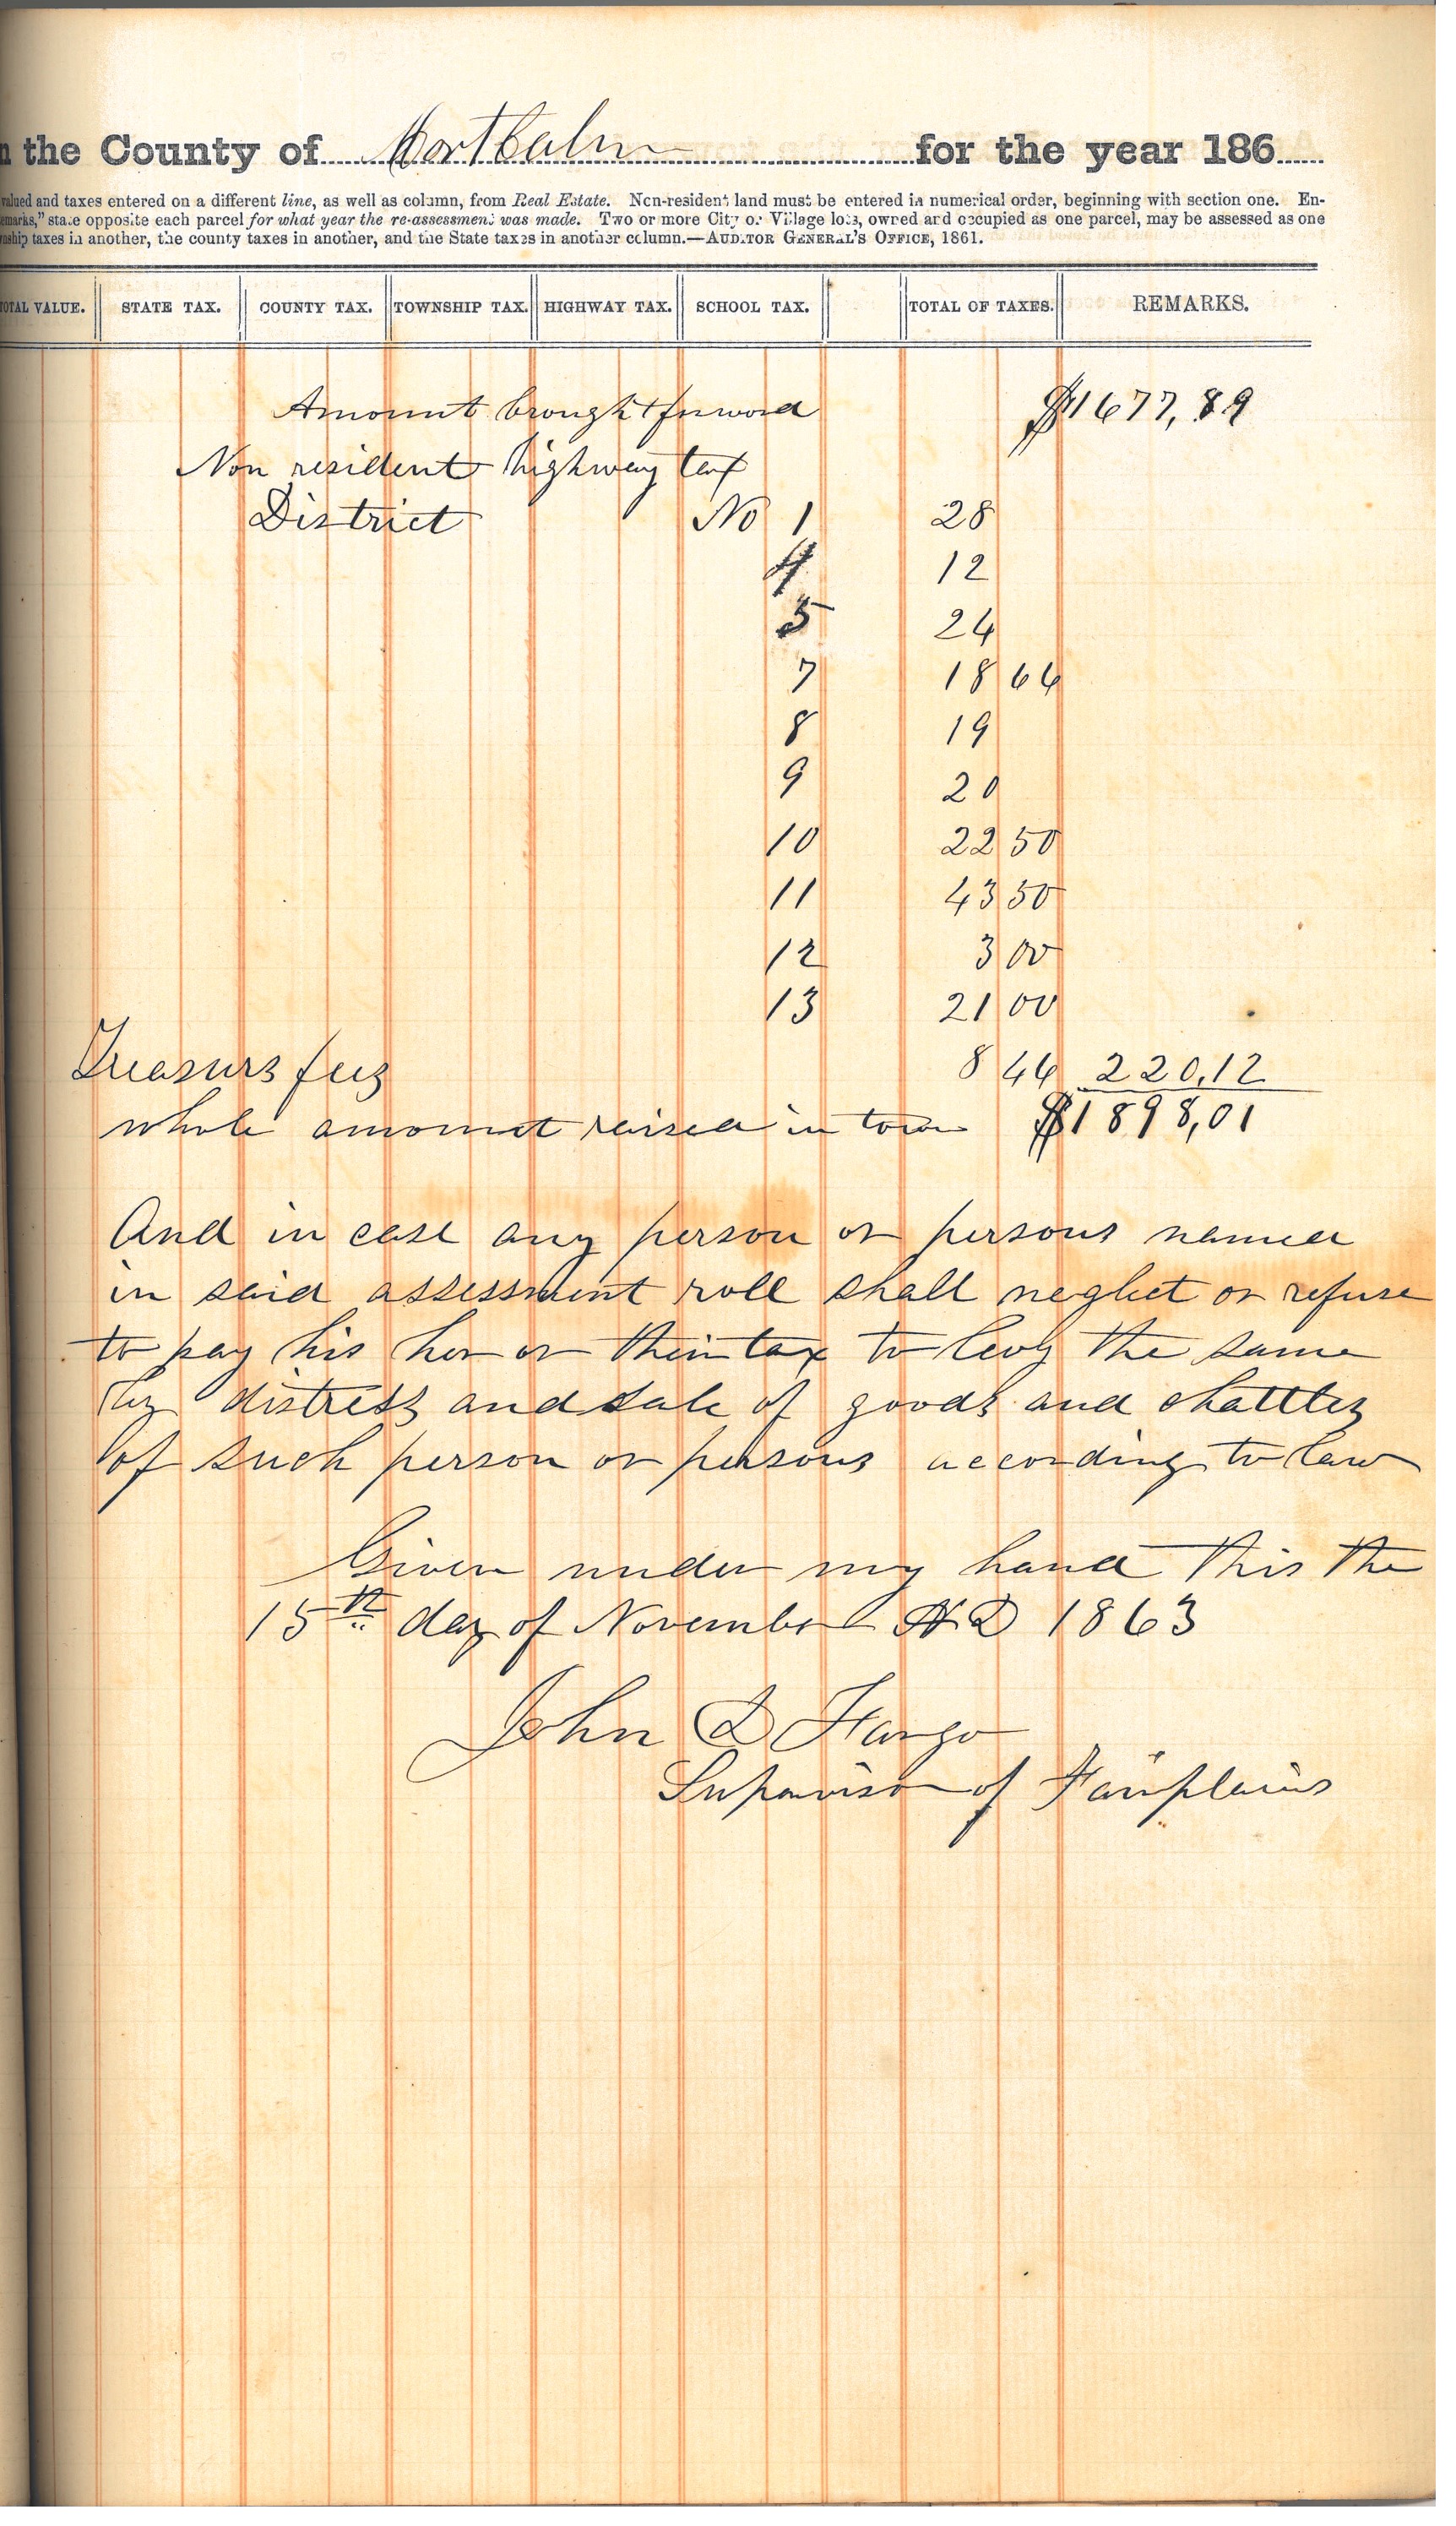 the County of MontCalm for the year 186
valued and taxes entered on a different line, as well as column, from Real Estate. Non-resident land must be entered in numerical order, beginning with section one. En-
emarks," state opposite each parcel for what year the re-assessment was made. Two or more City or Village lots, owned and occupied as one parcel, may be assessed as one
nship taxes in another, the county taxes in another, and the State taxes in another column.—AUDITOR GENERAL'S OFFICE, 1861.
TOTAL VALUE. STATE TAX. COUNTY TAX. TOWNSHIP TAX. HIGHWAY TAX. SCHOOL TAX. TOTAL OF TAXES. REMARKS.
Amount brought forword $1677,89
Non resident highway tax
District No 1 28
4 12
5 24
7 18 64
8 19
9 20
10 22 50
11 43 50
12 3 00
13 21 00
Treasurs fees 8 44 220,12
whole amomnt raised in town $1898,01
And in case any person or persons named
in said assessment roll shall neglect or refuse
to pay his her or their tax to levy the same
by distress and sale of goods and chattles
of such person or persons according to law
Given under my hand this the
15th day of November AD 1863
John D Fargo
Supervisor of Fairplains